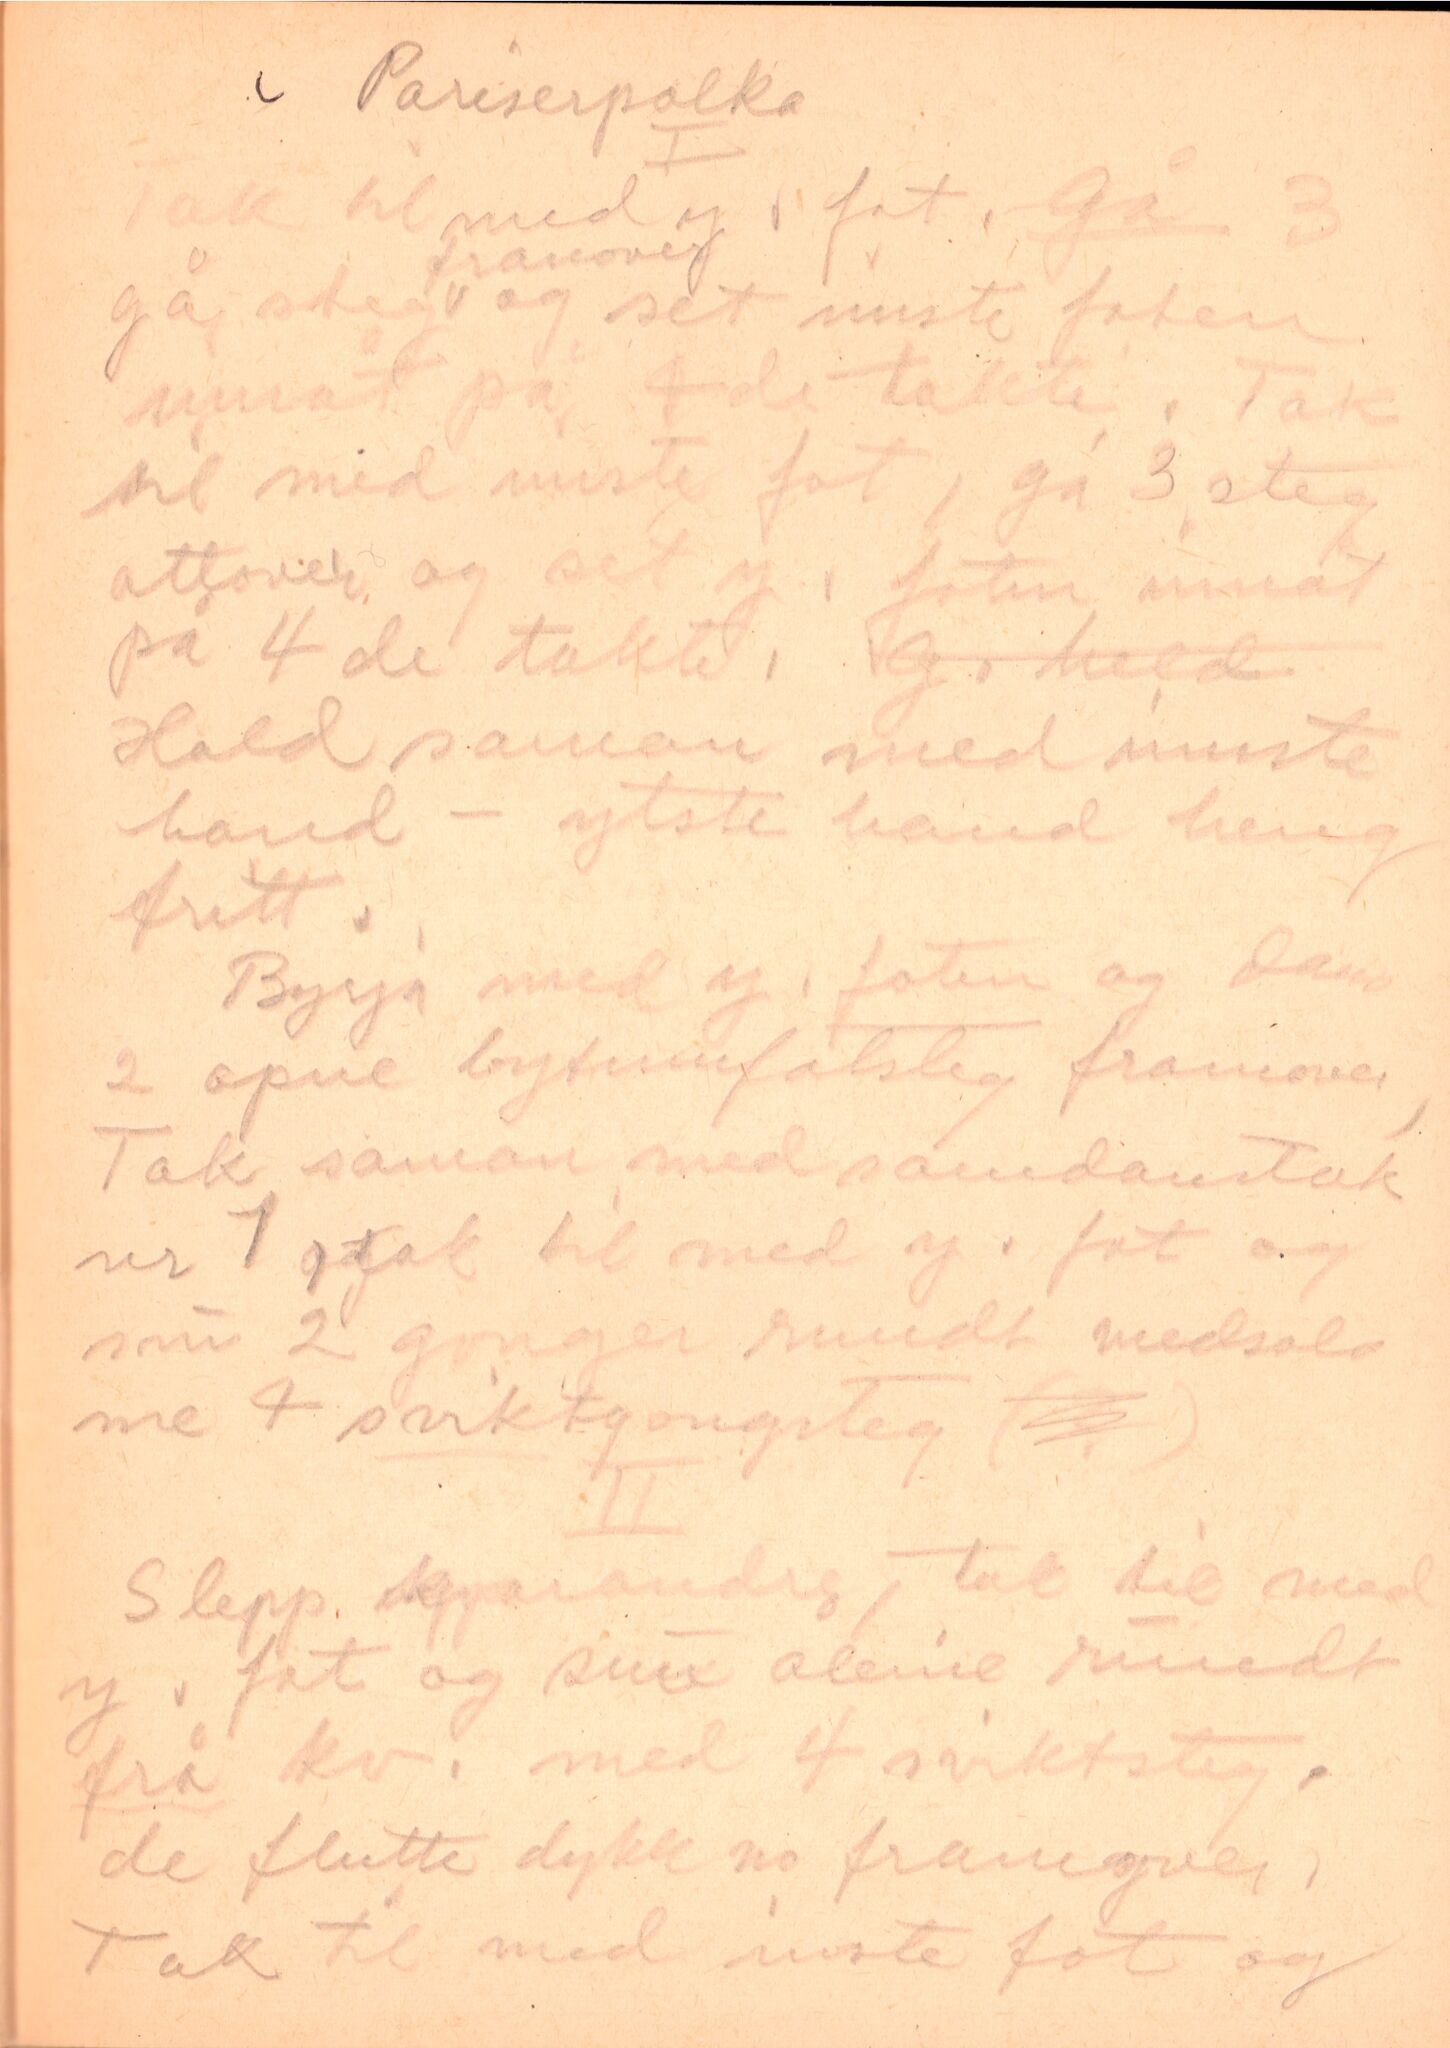 Pariserpolka
I
Tak til med y. fot. Gå 3
framover
gå steg og set inste foten
innåt på 4de takte. Tak
til med inste fot, gå 3 steg
attover og set y. foten innåt
på 4de takte. G. held
Hald saman med inste
hand - ytste hand heng
fritt.
Byrja med y. foten og dans
2 opne bytumfotsteg framover,
Tak saman med samdanstak
nr 1, tak til med y. fot og
snu 2 gonger rundt medsols
me 4 sviktgongsteg
II
Slepp kvarandre, tak til med
y. fot og snu aleine rundt
frå kv. med 4 sviktsteg.
de flutte dykk no framover.
Tak til med inste fot og